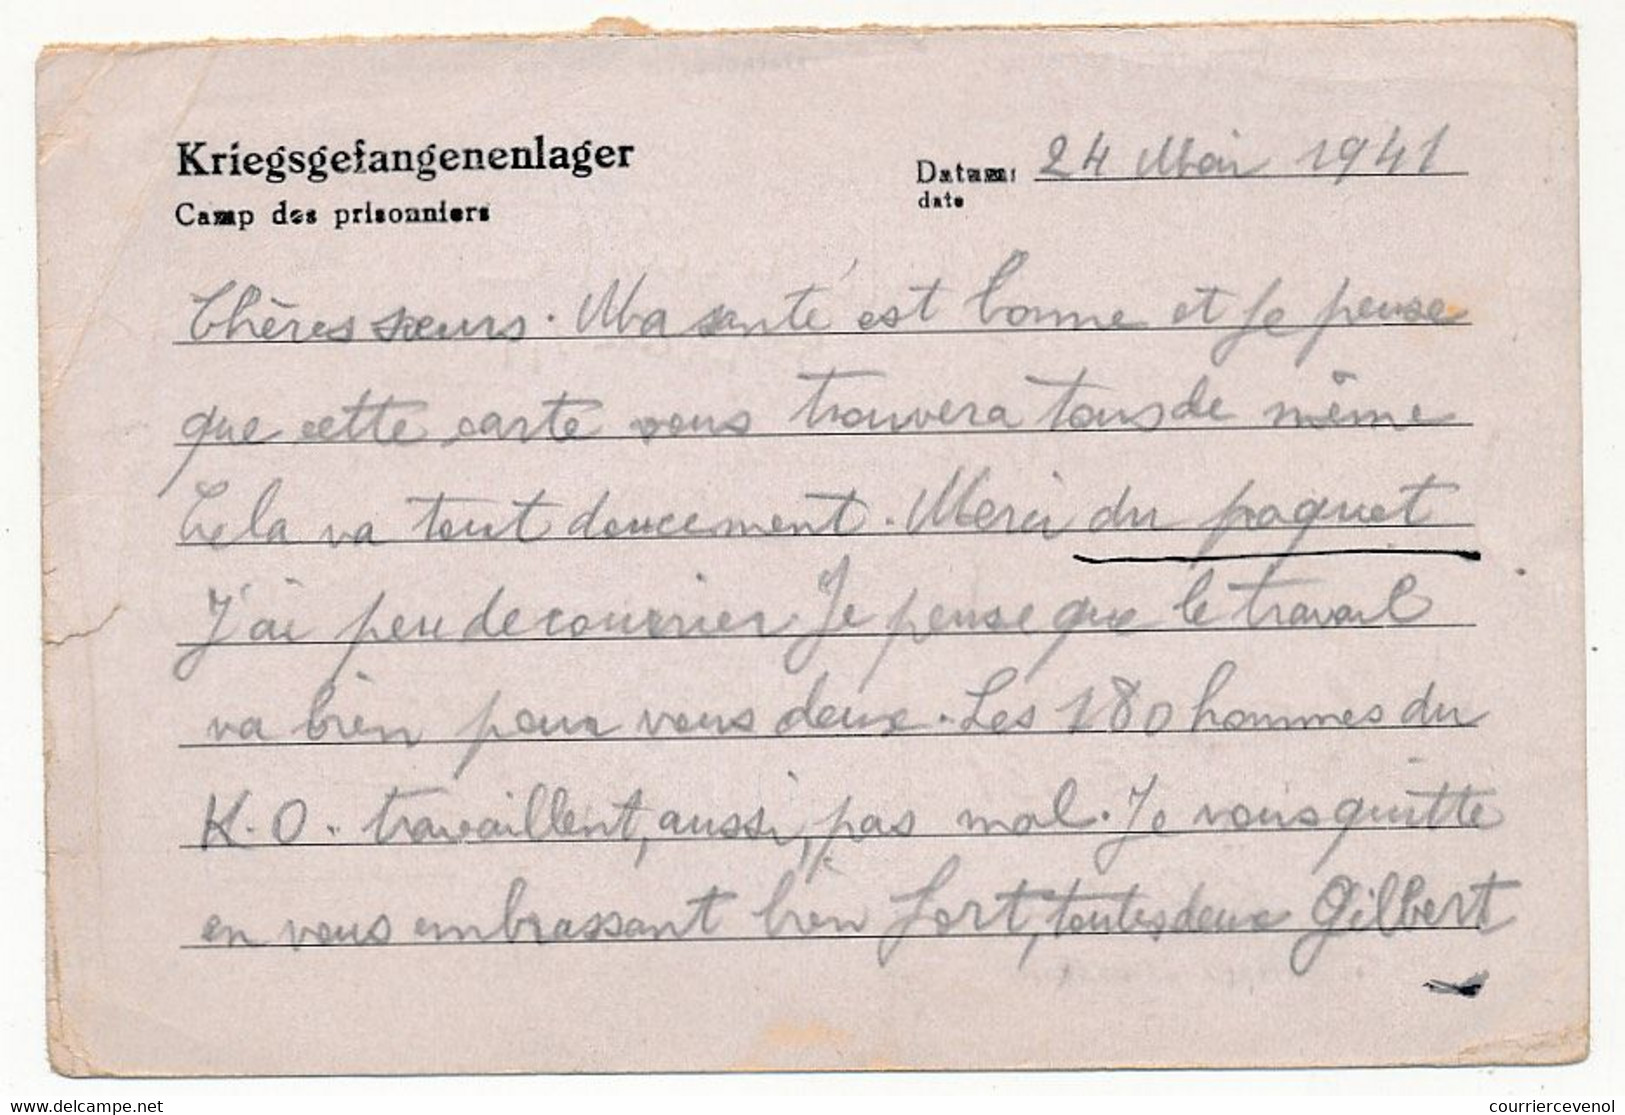 Kriegsgefangenenlager
Camp des prisonniers
Datum: 24 Mai 1941
date
Chères sœurs. Ma santé est bonne et Je pense
que cette carte vous trouvera tous de même
Cela va tout doucement. Merci du paquet
J'ai peu de courrier. Je pense que le travail
va bien pour vous deux. Les 180 hommes du
K.O. travaillent, aussi, pas mal. Je vous quitte
en vous embrassant bien fort, toutes deux Gilbert
delcampe.net
courriercevenol